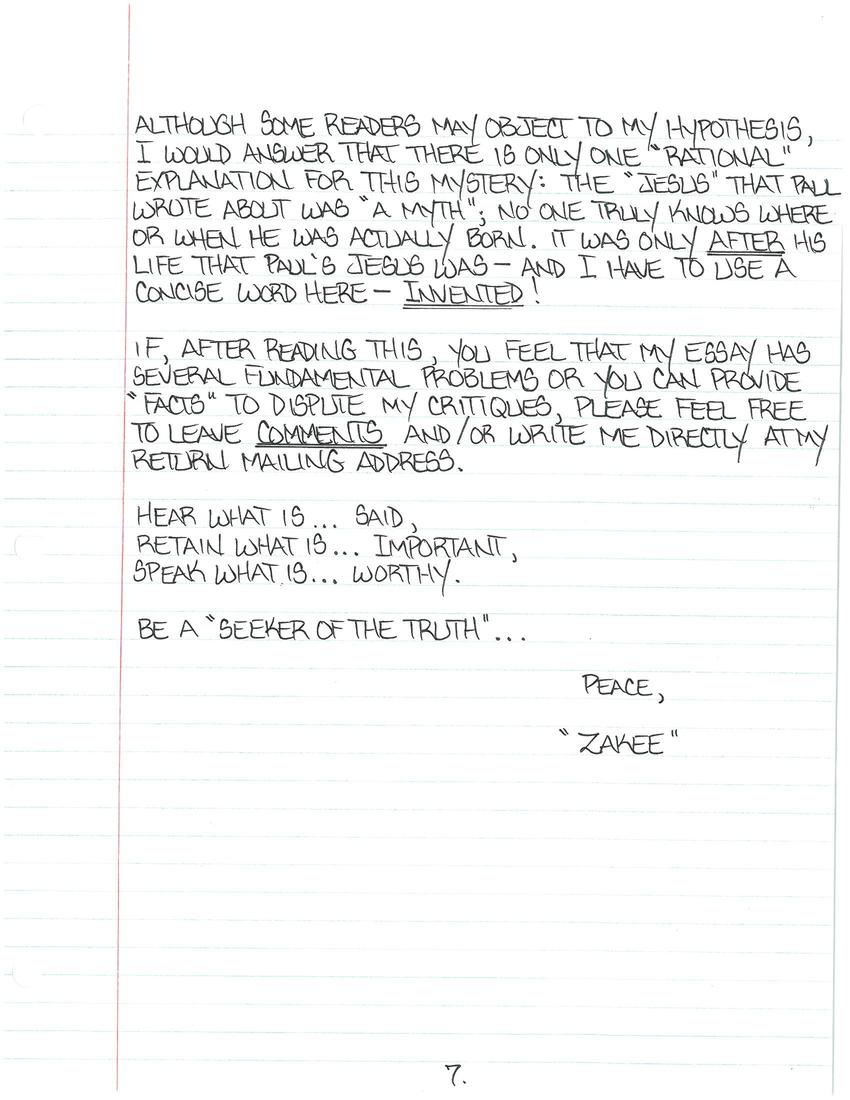 ALTHOUGH SOME READERS MAY OBJECT TO MY HYPOTHESIS,
I WOULD ANSWER THAT THERE IS ONLY ONE "RATIONAL"
EXPLANATION FOR THIS MYSTERY: THE "JESUS" THAT PAUL
WROTE ABOUT WAS "A MYTH"; NO ONE TRULY KNOWS WHERE
OR WHEN HE WAS ACTUALLY BORN. IT WAS ONLY AFTER HIS
LIFE THAT PAUL'S JESUS WAS — AND I HAVE TO USE A
CONCISE WORD HERE — INVENTED!
IF, AFTER READING THIS, YOU FEEL THAT MY ESSAY HAS
SEVERAL FUNDAMENTAL PROBLEMS OR YOU CAN PROVIDE
"FACTS" TO DISPUTE MY CRITIQUES, PLEASE FEEL FREE
TO LEAVE COMMENTS AND/OR WRITE ME DIRECTLY AT MY
RETURN MAILING ADDRESS.
HEAR WHAT IS... SAID,
RETAIN WHAT IS... IMPORTANT,
SPEAK WHAT IS... WORTHY.
BE A "SEEKER OF THE TRUTH"...
PEACE,
"ZAKEE"
7.